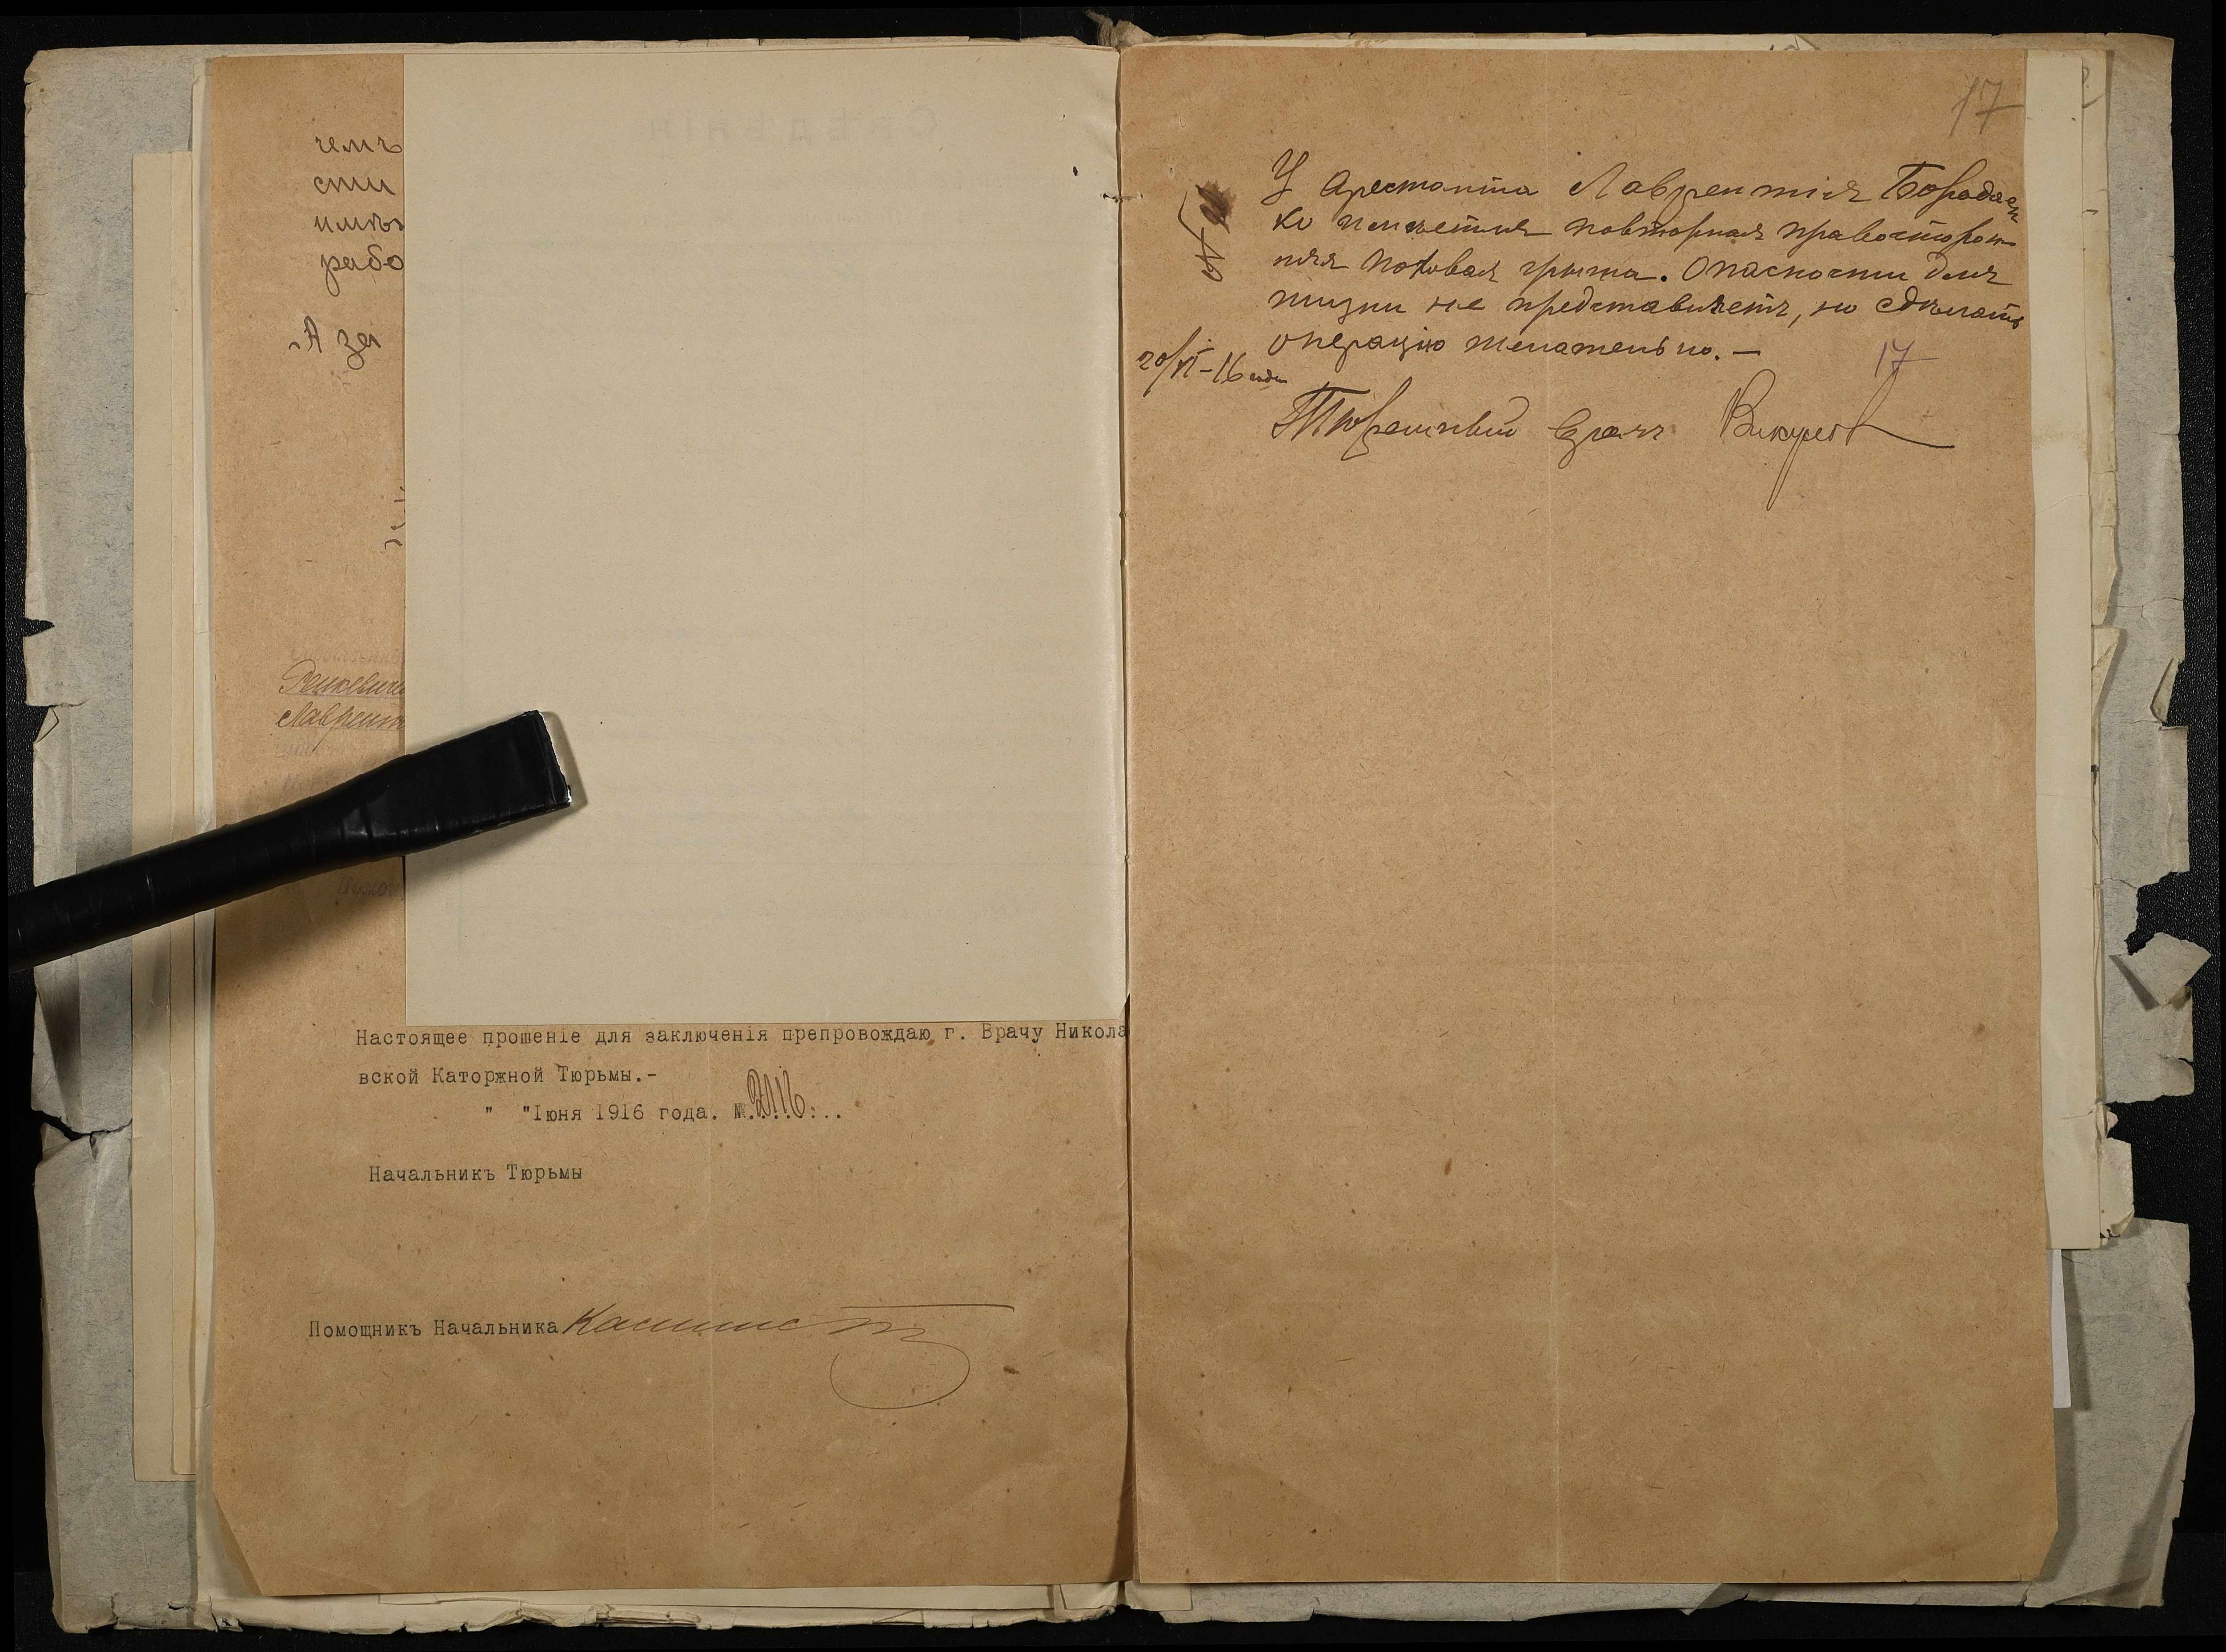 чемъ
сти
имѣ
рабо
А за
Лаврент
Настоящее прошеніе для заключенія препровождаю г. Врачу Никола
вской Каторжной Тюрьмы.-
" "Іюня 1916 года. №.2016...
Начальникъ Тюрьмы
Помощникъ Начальника
17
У арестанта Лаврентія Бородаен
ко имѣется повторная правосторон
няя паховая грыжа. Опасности для
жизни не представляетъ, но сдѣлать
операцію желательно. —
17
20/VI-16 года
Тюремный врачъ